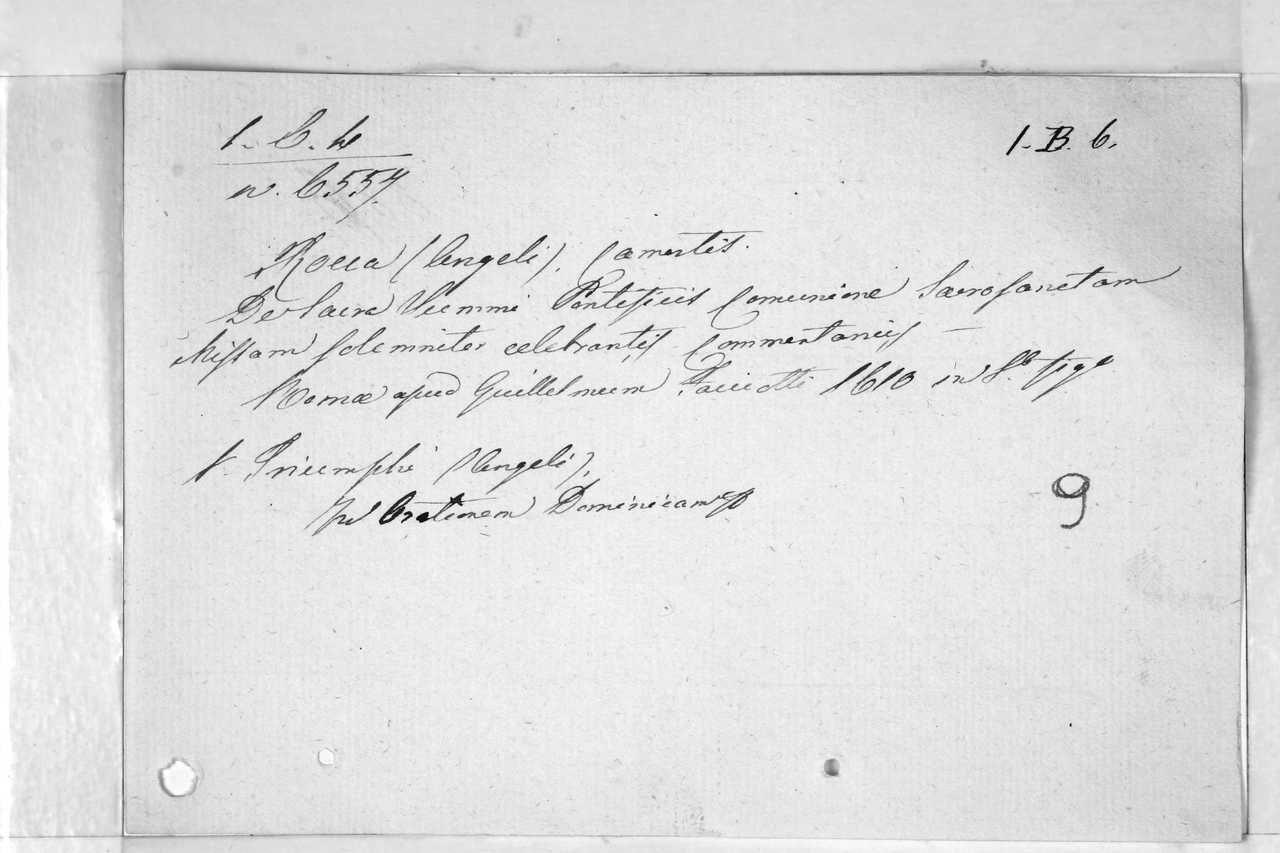 1. C. 4
1. B. 6.
n. 6557.
Rocca (Angeli). Camertis.
De Sacra Summi Pontificis Comunione Sacrosanctam
Missam solemniter celebrantis Commentarius —
Romæ apud Guillelmum Facciotti 1610 in 8º fig.
V. Triumphi (Angeli),
In Orationem Dominicam
9